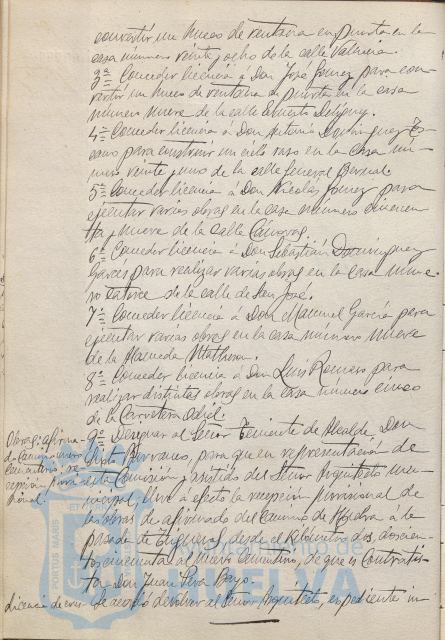 convertir un hueco de ventana en puerta en la
casa número veinte y ocho de la calle Valencia.
3ª Conceder licencia á Don José Gómez para con-
vertir un hueco de ventana de puerta en la casa
número nueve de la calle Ernesto Deligny.
4ª Conceder licencia á Don Antonio Domínguez
para construir un cielo raso en la casa nú-
mero veinte y uno de la calle General Bernal.
5ª Conceder licencia á Don Nicolás Gómez para
ejecutar varias obras en la casa número cincuen-
ta y nueve de la calle Cánovas.
6ª Conceder licencia á Don Sebastián Domínguez
Garcés para realizar varias obras en la casa núme-
ro catorce de la calle de San José.
7ª Conceder licencia á Don Manuel García para
ejecutar varias obras en la casa número nueve
de la Alameda
8ª Conceder licencia á Don Luis Romero para
realizar distintas obras en la casa número cinco
de la Carretera Odiel.
Obras: afirma-
do Camino
Cementerio: re-
cepción provi-
sional.
9ª Designar al Señor Teniente de Alcalde, Don
para que en representación de
la Comisión, asistido del Señor Arquitecto mu-
nicipal, lleve á efecto la recepción provisional de
las obras de afirmado del Camino de á la
de desde el Kilómetro dos, doscien-
tos al Nuevo Cementerio, de que es Contratis-
ta Don Juan
Licencia de
Se acordó devolver al Señor Arquitecto, expediente in-
PORTUS MARIS
Ayuntamiento de
HUELVA